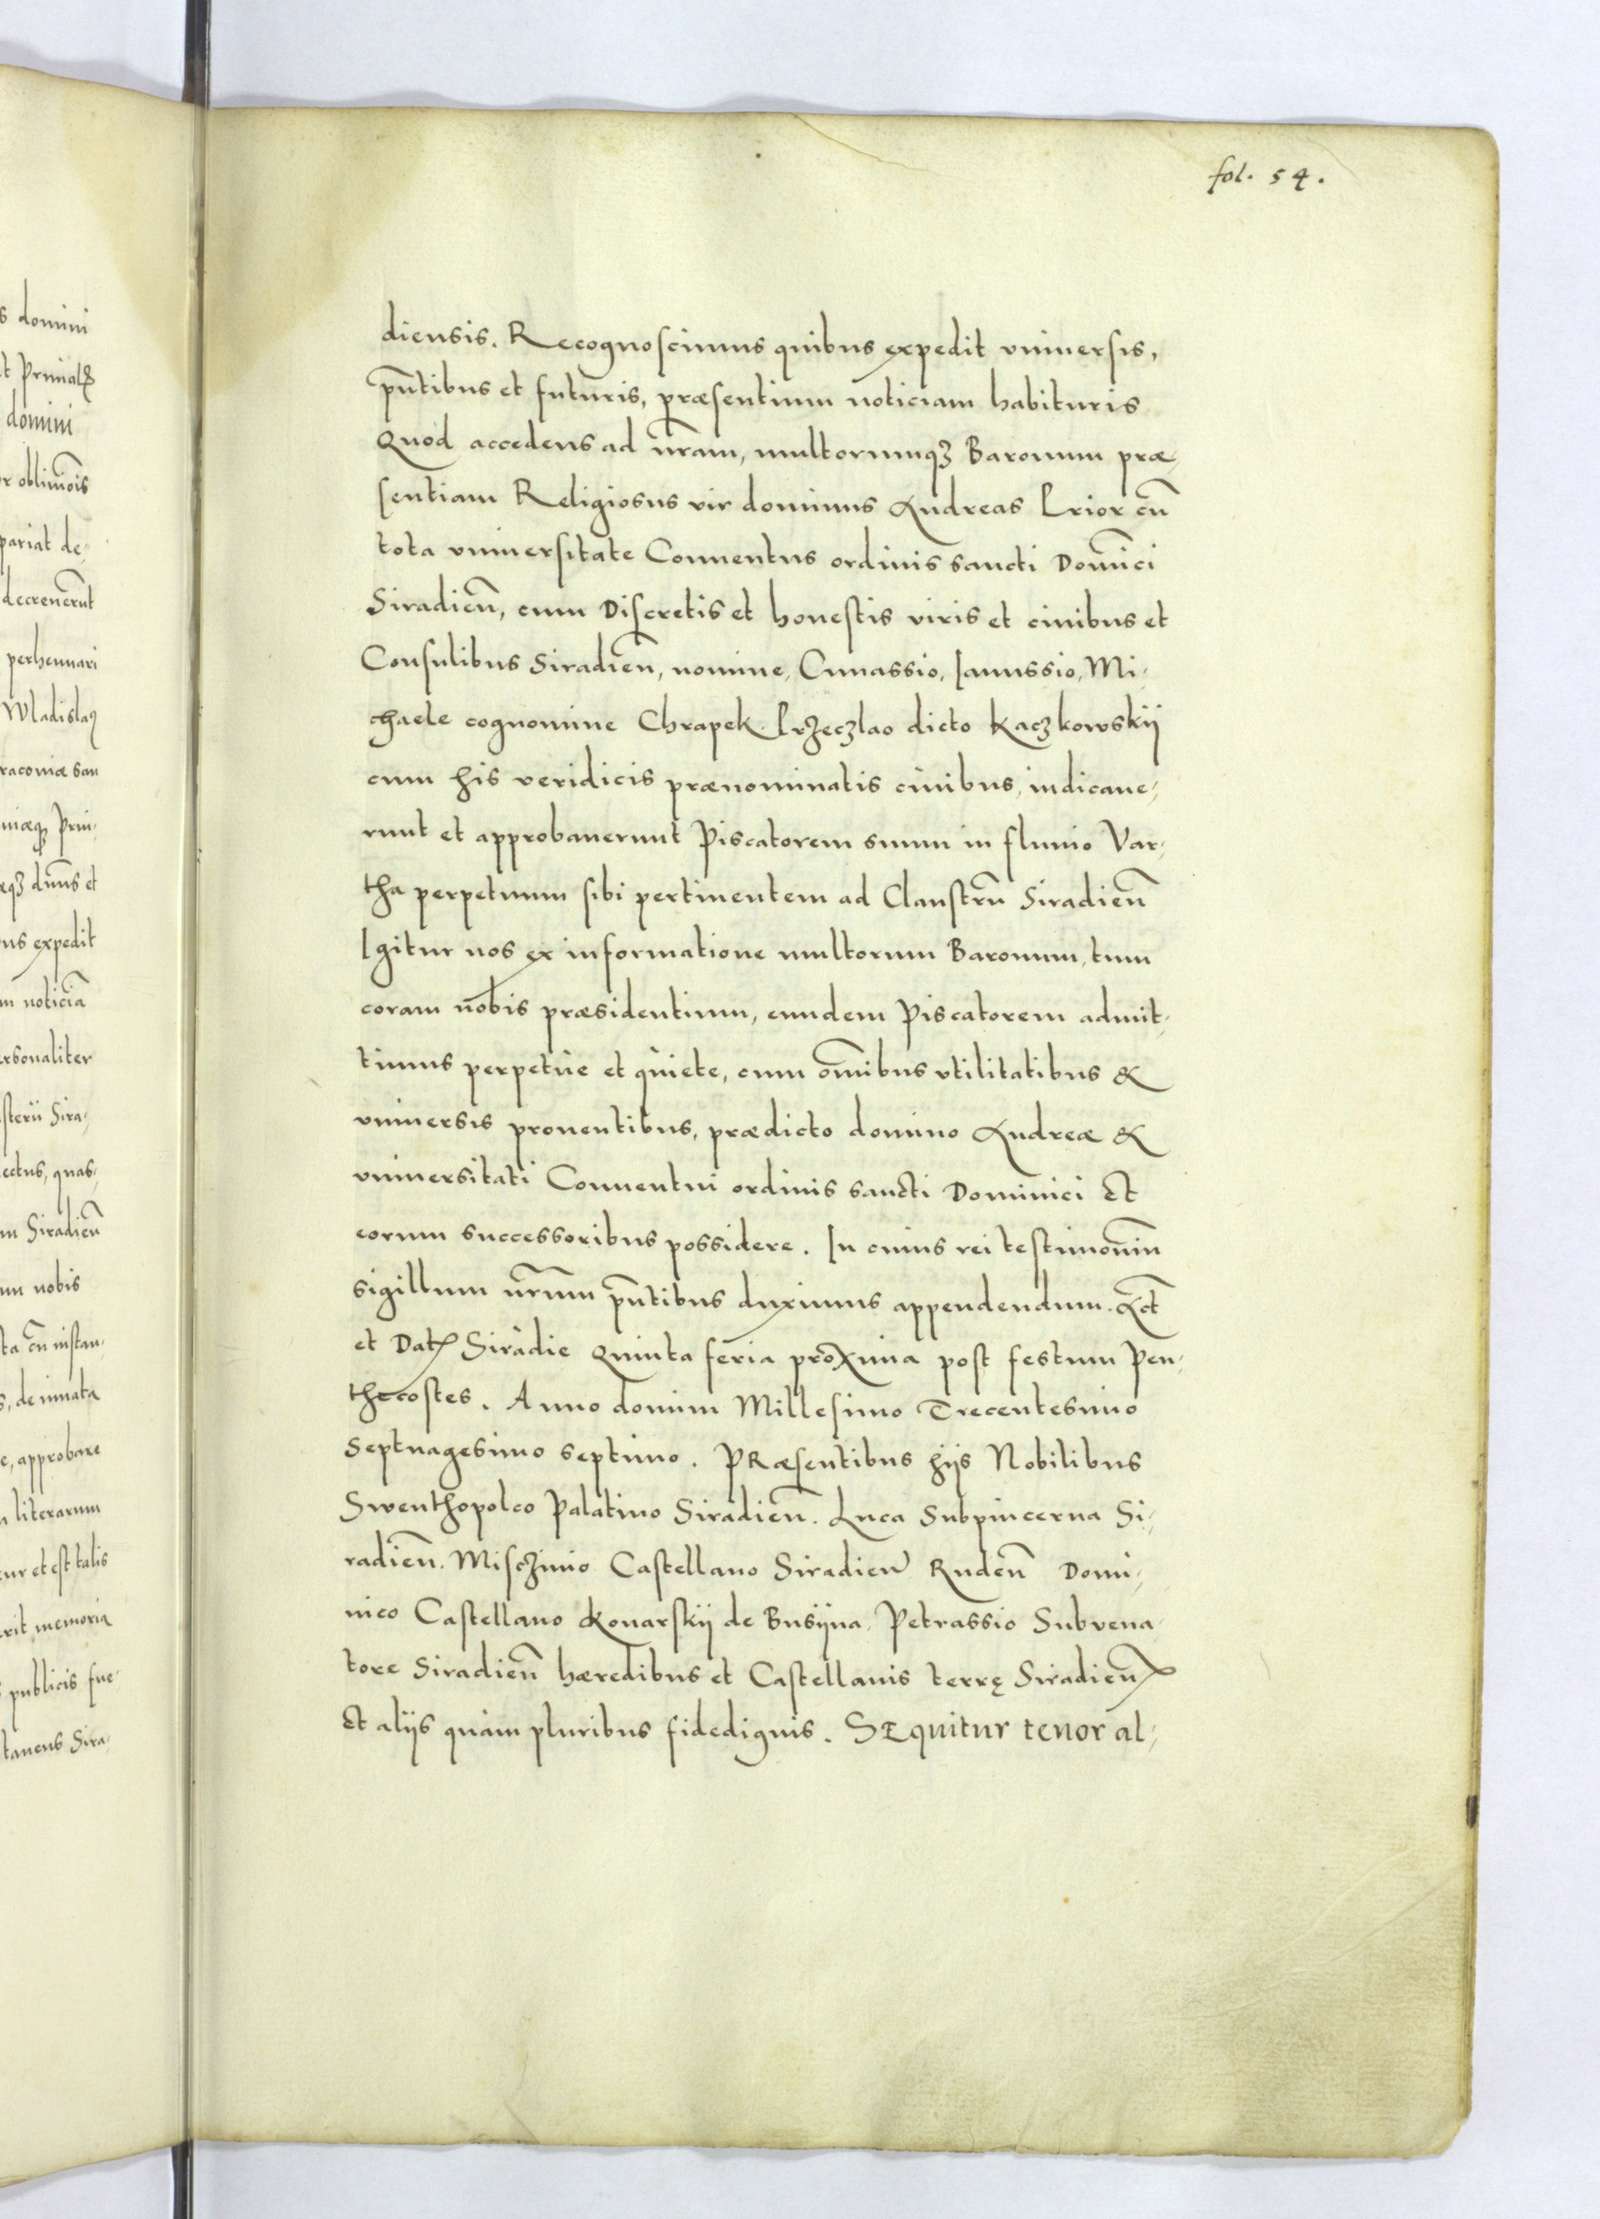 fol. 54.
diensis. Recognoscimus quibus expedit vniuersis,
pn̄tibus et futuris, præsentium noticiam habituris
Quod accedens ad nr̄am, multorumqꝫ Baronum præ-
sentiam Religiosus vir dominus Andreas Prior cū
tota vniuersitate Conuentus ordinis sancti Domīci
Siradien̄, cum Discretis et honestis viris et ciuibus et
Consulibus Siradien̄, nomine, Cunassio, Ianussio, Mi-
chaele cognomine Chrapek. Przeczlao dicto Kaczkowskij
cum his veridicis prænominatis ciuibus, iudicaue-
runt et approbauerunt Piscatorem suum in fluuio Var-
tha perpetuum sibi pertinentem ad Claustrū Siradien̄
Igitur nos ex informatione multorum Baronum, tum
coram nobis præsidentium, eundem Piscatorem admit-
timus perpetue et quiete, cum om̄ibus vtilitatibus &
vniuersis prouentibus, prædicto domino Andreæ &
vniuersitati Conuentui ordinis sancti Dominici Et
eorum successoribus possidere. In cuius rei testimoniū
sigillum nr̄um pn̄tibus duximus appendendum. Act̄
et Dat Siradie Quinta feria proxima post festum Pen-
thecostes. Anno domini Millesimo Trecentesimo
septuagesimo septimo. PRæsentibus hijs Nobilibus
Swenthopolco Palatino Siradien̄. Luca Subpincerna Si-
radien̄. Misczinio Castellano Siradien̄ Ruden̄ Domi-
nico Castellano Konarskij de Busijna, Petrassio Subvena-
tore Siradien̄ hæredibus et Castellanis terrę Siradien̄
Et alijs quàm pluribus fidedignis. SEquitur tenor al-